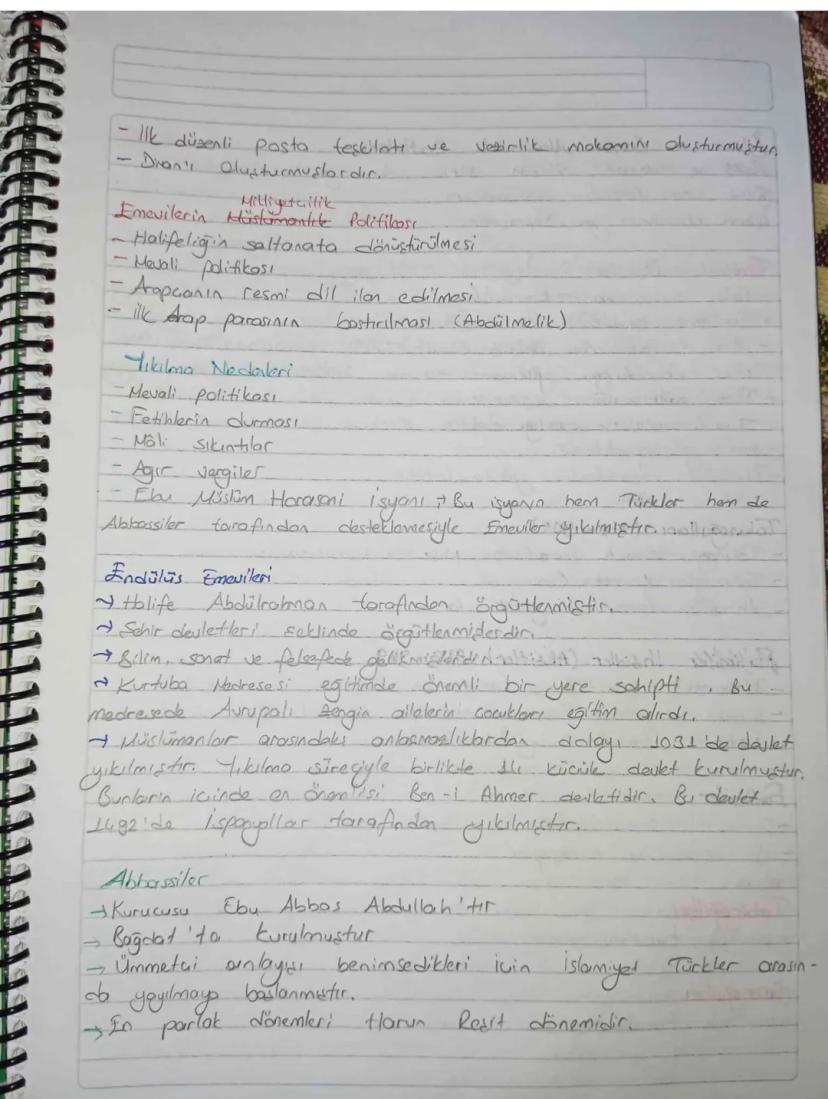 - İlk düzenli posta teşkilatı ve vezirlik makamını oluşturmuştur.
- Divan'ı oluşturmuşlardır.
Milliyetcilik
Emevilerin Müslümanlık Politikası
- Halifeliğin saltanata dönüştürülmesi
- Mevali politikası
- Arapcanın resmi dil ilan edilmesi
- İlk Arap parasının bastırılması (Abdülmelik)
Yıkılma Nedenleri
- Mevali politikası
- Fetihlerin durması
- Mâli sıkıntılar
- Agır vergiler
- Ebu Müslüm Horasani isyanı → Bu isyanın hem Türkler hem de
Abbassiler tarafından desteklemesiyle Emeviler yıkılmıştır.
Endülüs Emevileri
→ Halife Abdülrahman tarafından örgütlenmiştir.
→ Şehir devletleri seklinde örgütlenmişlerdir.
→ Bilim, sanat ve felsefede gelişmişlerdir.
→ Kurtuba Medresesi eğitimde önemli bir yere sahipti. Bu
medresede Avrupalı zengin ailelerin cocukları eğitim alırdı.
→ Müslümanlar arasındaki anlasmazlıklardan dolayı 1031'de devlet
yıkılmıştır. Yıkılma süreciyle birlikte 14 kücük devlet kurulmuştur.
Bunların icinde en önemlisi Ben-i Ahmer devletidir. Bu devlet
1492'de İspanyollar tarafından yıkılmıştır.
Abbassiler
→ Kurucusu Ebu Abbas Abdullah'tır
→ Bağdat'ta kurulmuştur
→ Ümmetci anlayışı benimsedikleri icin İslamiyet Türkler arasın-
da yayılmaya başlanmıştır.
→ En parlak dönemleri Harun Reşit dönemidir.